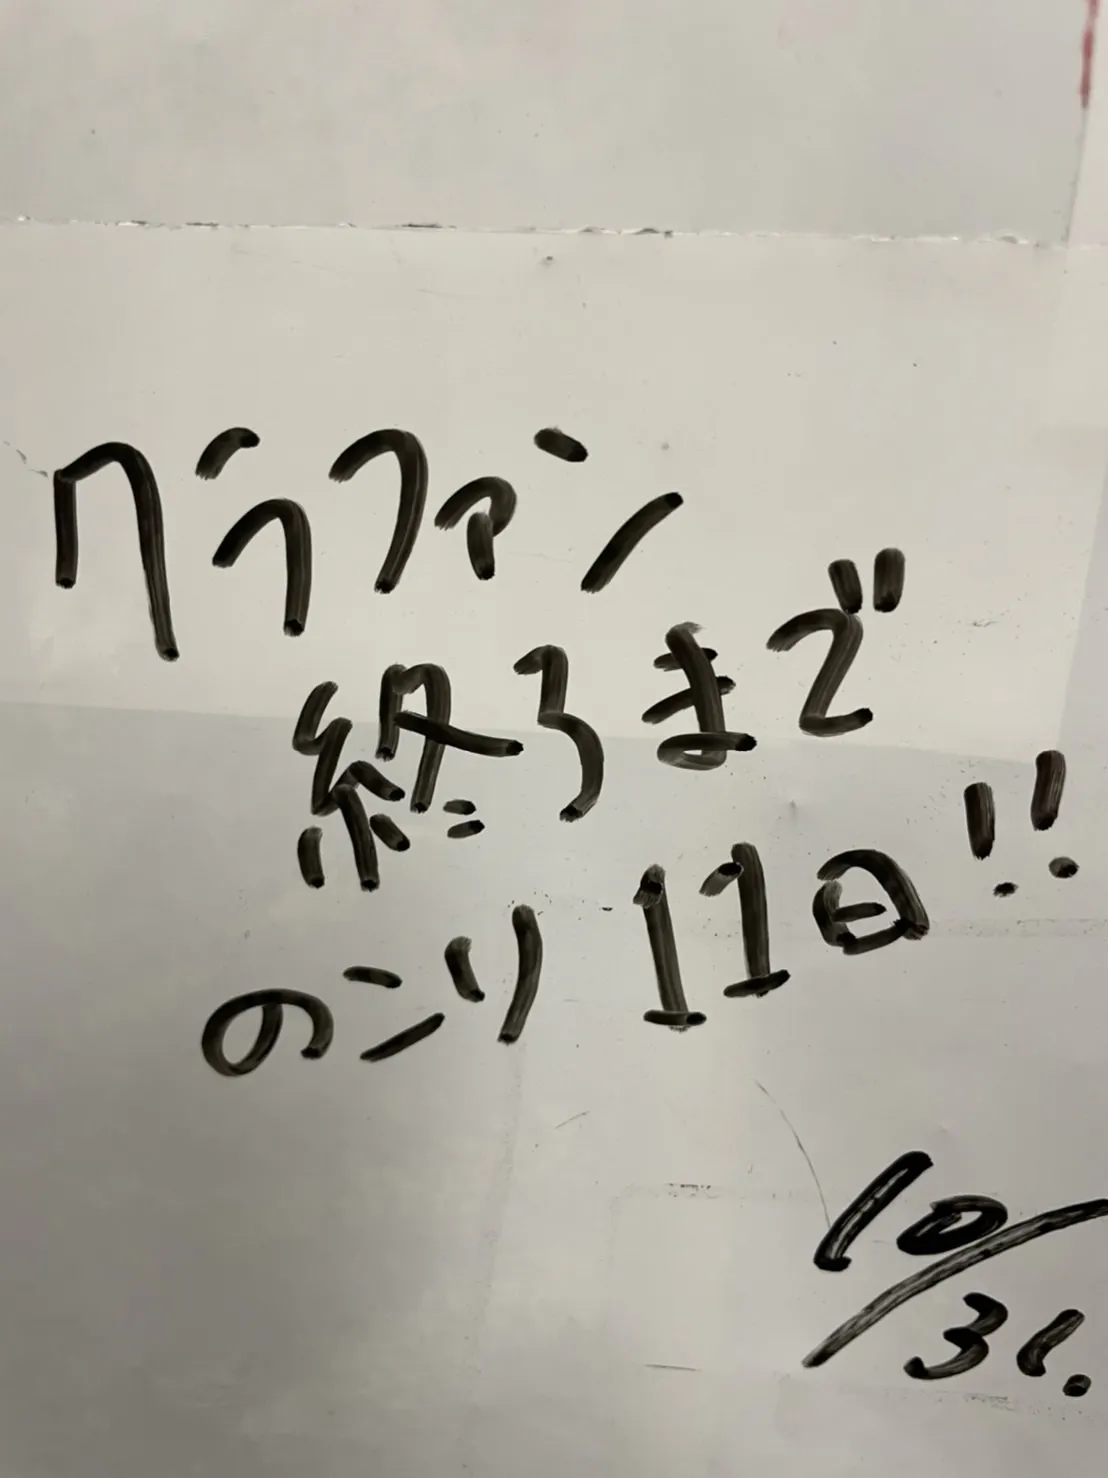 クラファン
終るまで
のこり11日!!
10/31.